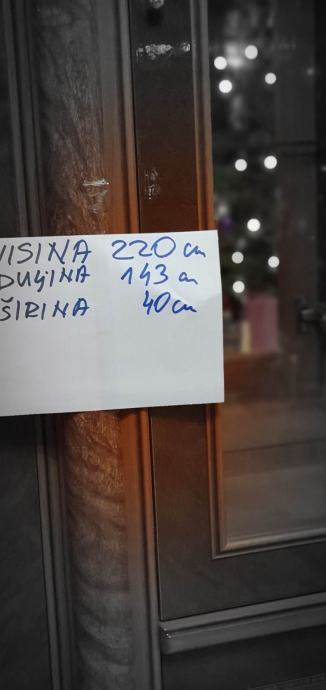 VISINA 220 cm
DULJINA 143 cm
ŠIRINA 40 cm